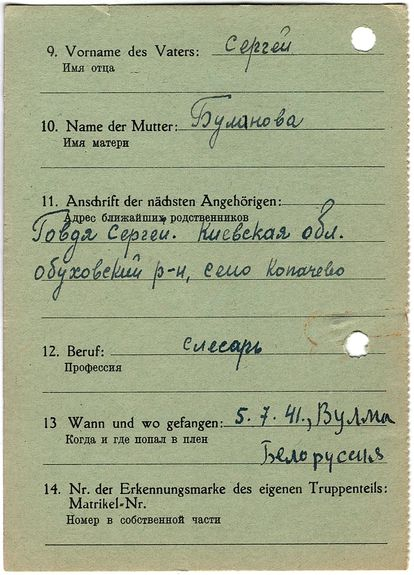 9. Vorname des Vaters: Сергей
Имя отца
10. Name der Mutter: Буланова
Имя матери
11. Anschrift der nächsten Angehörigen:
Адрес ближайших родственников
Говдя Сергей. Киевская обл.
обуховский р-н, село Копачево
12. Beruf: слесарь
Профессия
13 Wann und wo gefangen: 5.7.41., Вулма
Когда и где попал в плен
Белоруссия
14. Nr. der Erkennungsmarke des eigenen Truppenteils:
Matrikel-Nr.
Номер в собственной части